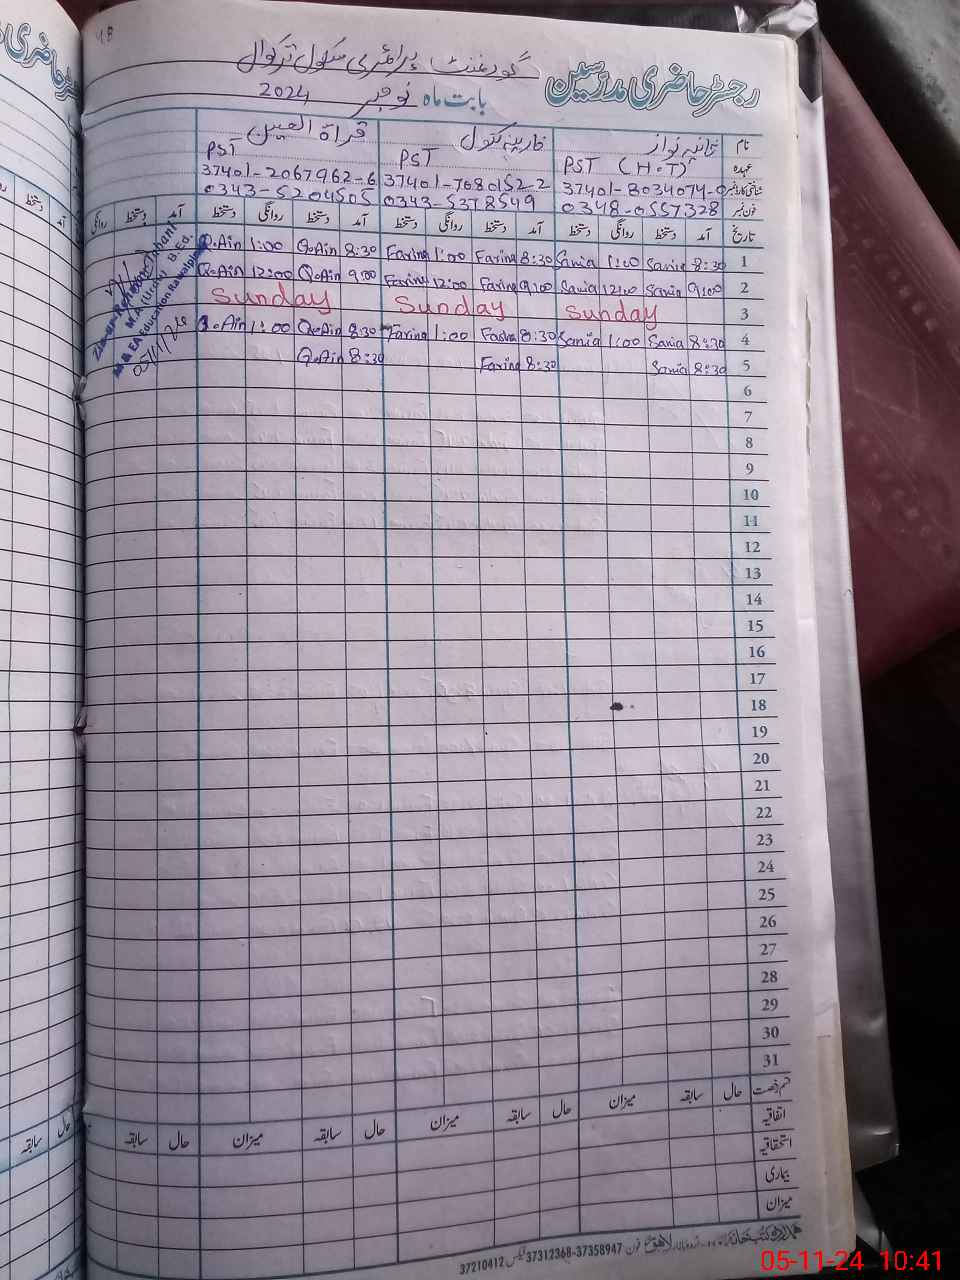 48
رجسٹر حاضری مدرسین گورنمنٹ پرائمری سکول
بابت ماہ نومبر 2024
نام ثانیہ نواز فارینہ بتول قراۃ العین
عہدہ PST (H.T) PST PST
شناختی کارڈ نمبر 37401-8034074-0 37401-7680152-2 37401-2067962-6
فون نمبر 0348-0557328 0343-5378549 0343-5204505
تاریخ آمد دستخط روانگی دستخط آمد دستخط روانگی دستخط آمد دستخط روانگی دستخط آمد دستخط روانگی
1 8:30 Sania 1:00 Sania 8:30 Farina 1:00 Farina 8:30 Q.Ain 1:00 Q.Ain
2 9:00 Sania 12:00 Sania 9:00 Farina 12:00 Farina 9:00 Q.Ain 12:00 Q.Ain
3 Sunday Sunday Sunday
4 8:30 Sania 1:00 Sania 8:30 Farina 1:00 Farina 8:30 Q.Ain 1:00 Q.Ain
5 8:30 Sania 8:30 Farina 8:30 Q.Ain
M.A (Urdu) B.Ed.
EA Education Rawalpindi
05/11/24
6
7
8
9
10
11
12
13
14
15
16
17
18
19
20
21
22
23
24
25
26
27
28
29
30
31
قسم رخصت حال سابقہ میزان حال سابقہ میزان حال سابقہ میزان حال سابقہ
اتفاقیہ
استحقاقیہ
بیماری
میزان
ہمدرد کتب خانہ لاہور فون 37358947-37312368 فیکس 37210412
05-11-24 10:41